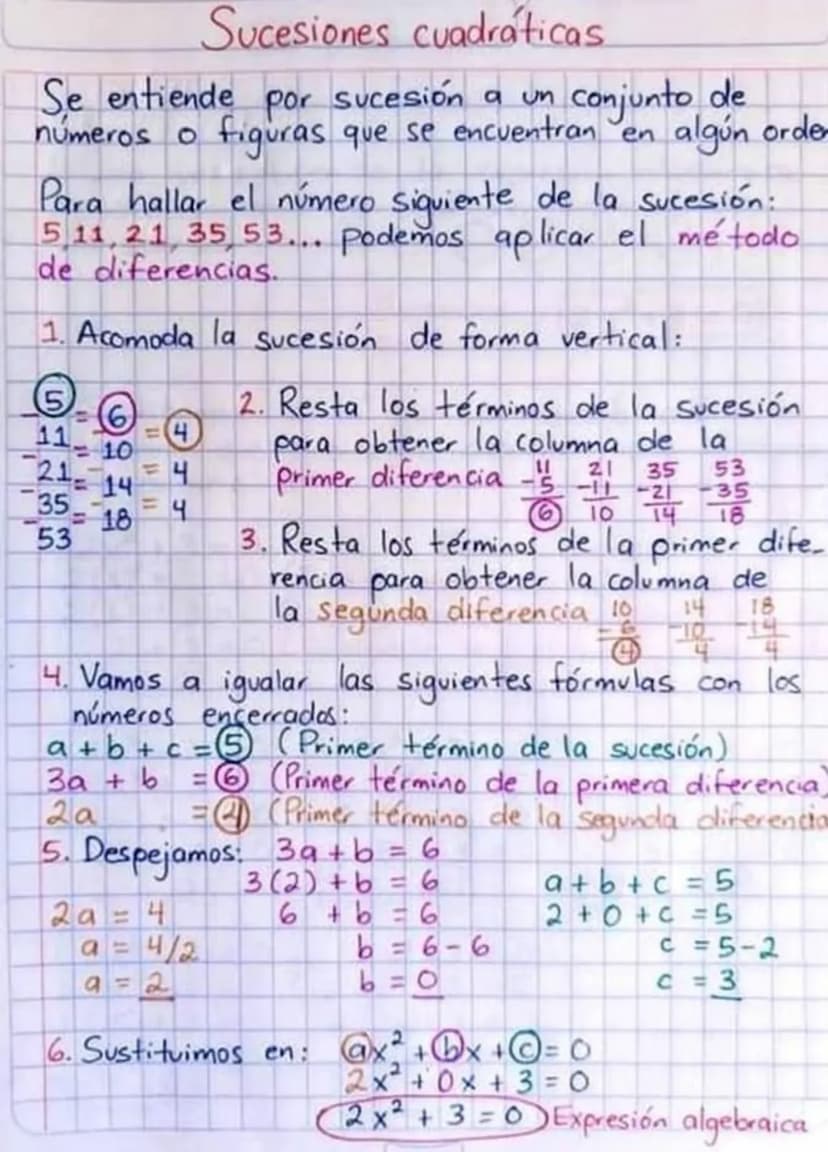 Sucesiones cuadráticas
Se entiende por sucesión a un conjunto de
números o figuras que se encuentran en algún orden
Para hallar el número siguiente de la sucesión:
5,11,21,35,53... podemos aplicar el método
de diferencias.
1. Acomoda la sucesión de forma vertical:
5
- = 6
11 - = 4
- = 10
21 - = 4
- = 14
35 - = 4
- = 18
53
2. Resta los términos de la sucesión
para obtener la columna de la
primer diferencia 11 21 35 53
-5 -11 -21 -35
6 10 14 18
3. Resta los términos de la primer dife-
rencia para obtener la columna de
la segunda diferencia 10 14 18
-6 -10 -14
4 4 4
4. Vamos a igualar las siguientes fórmulas con los
números encerrados:
a + b + c = 5 (Primer término de la sucesión)
3a + b = 6 (Primer término de la primera diferencia)
2a = 4 (Primer término de la segunda diferencia
5. Despejamos:
2a = 4
a = 4/2
a = 2
3a + b = 6
3(2) + b = 6
6 + b = 6
b = 6 - 6
b = 0
a + b + c = 5
2 + 0 + c = 5
c = 5 - 2
c = 3
6. Sustituimos en: ax² + bx + c = 0
2x² + 0x + 3 = 0
2x² + 3 = 0 Expresión algebraica